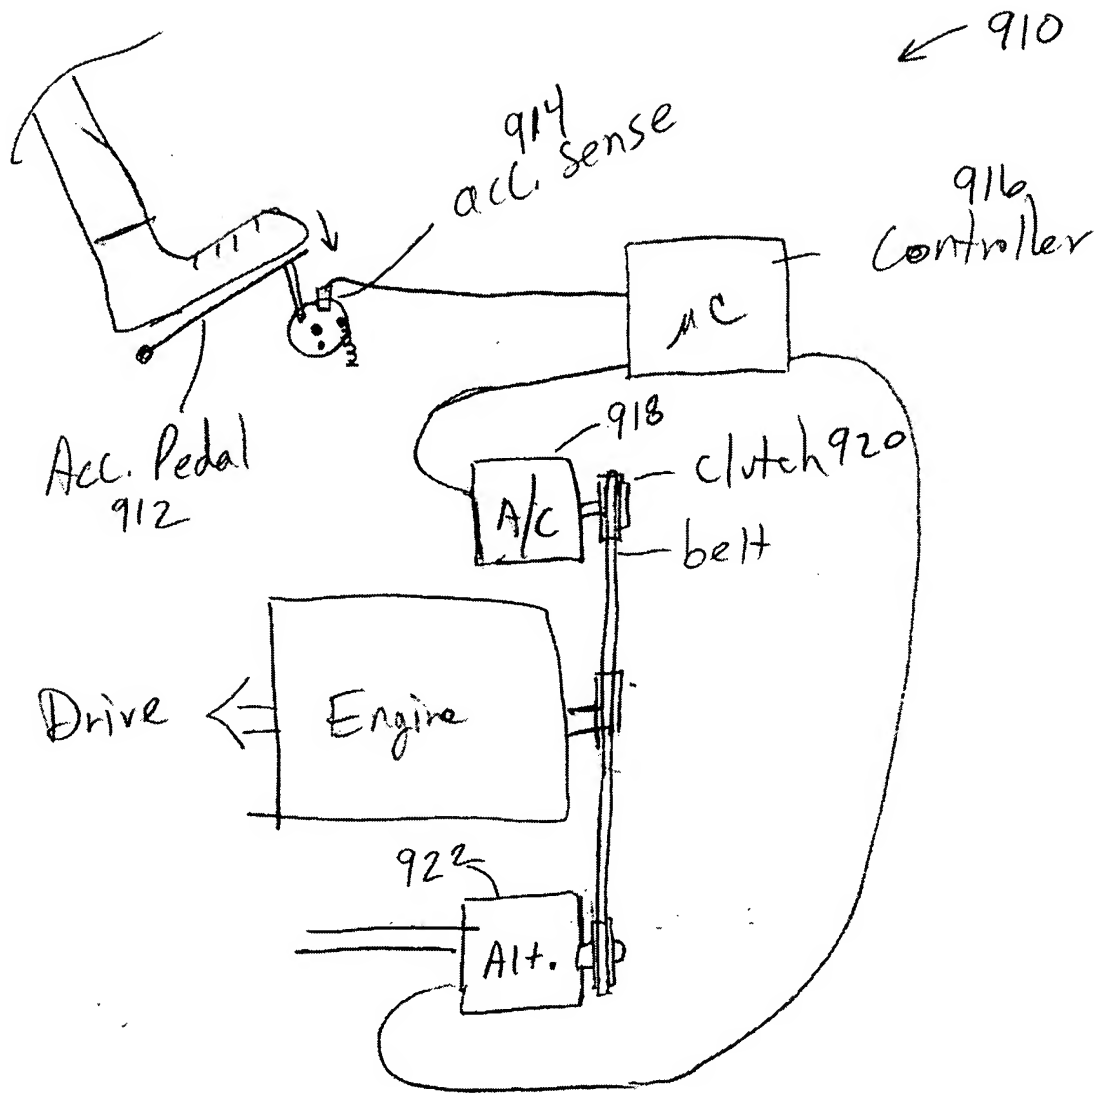 910
914
acc. sense
916
Controller
μC
Acc. Pedal
912
918
Clutch 920
A/C
belt
Drive
Engine
922
Alt.